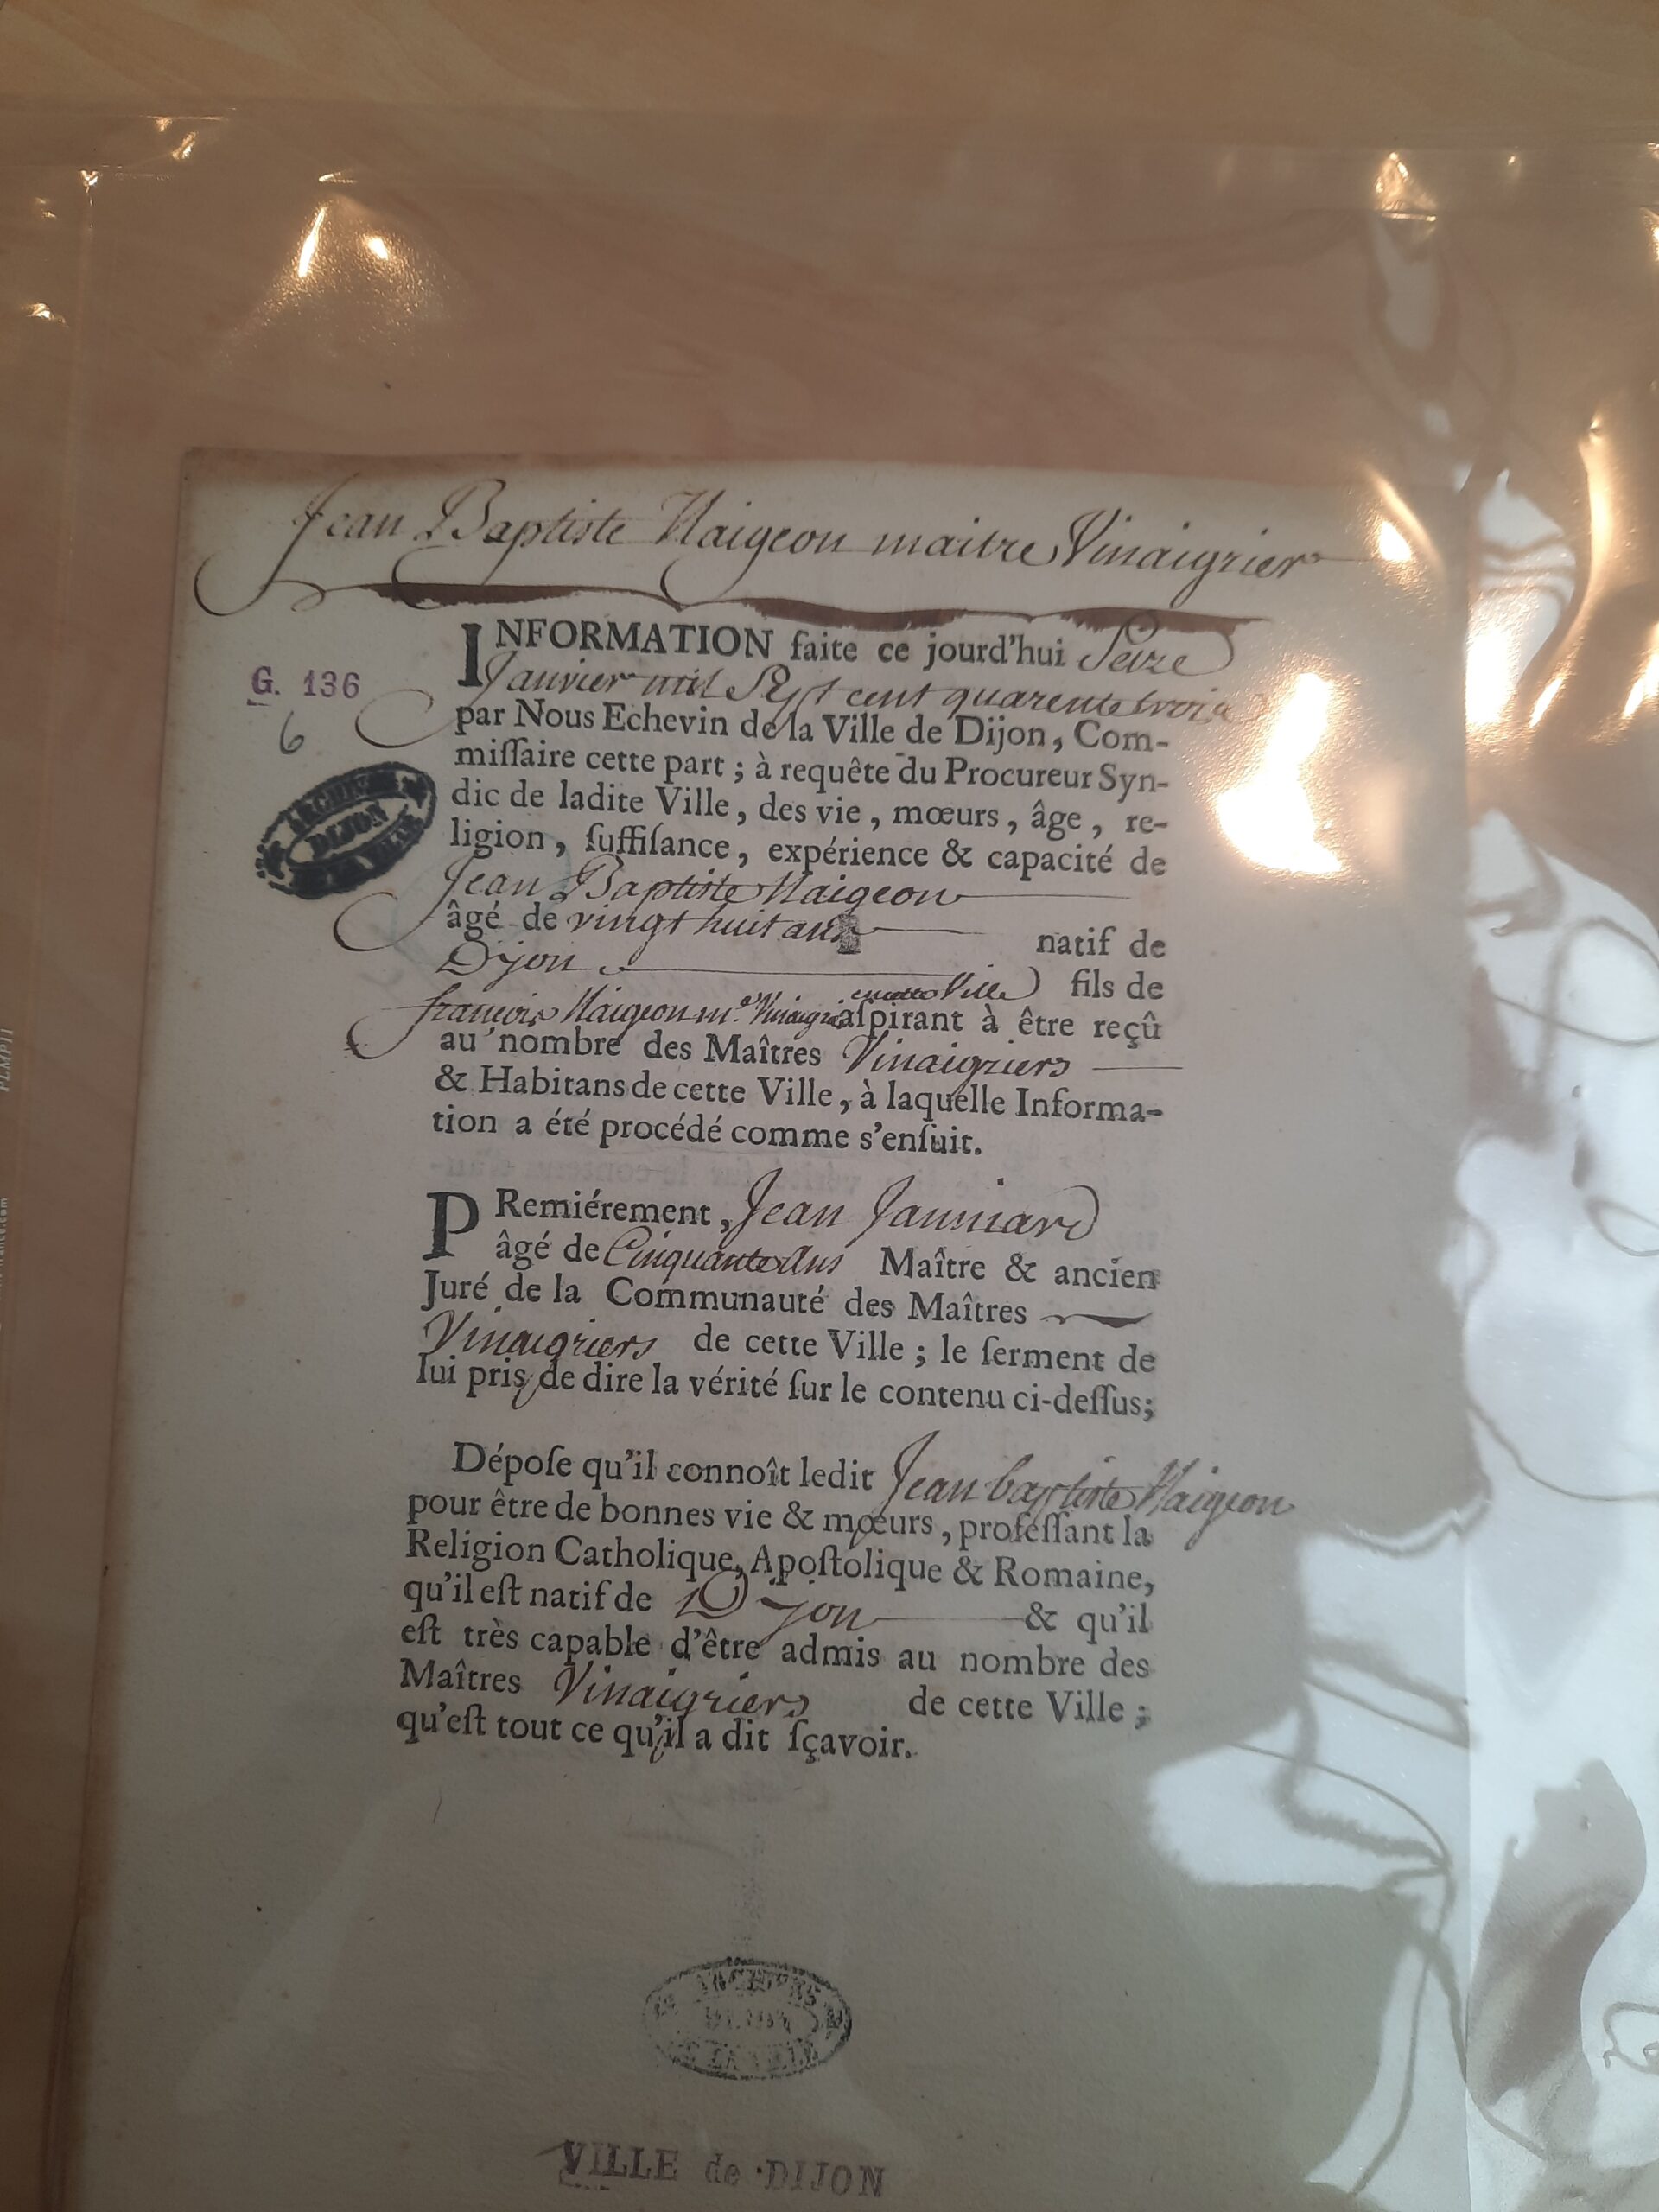 Jean Baptiste Naigeon maitre Vinaigrier
INFORMATION faite ce jourd'hui Seize
Janvier mil Sept cent quarente trois
G. 136
6
par Nous Echevin de la Ville de Dijon, Com-
miſſaire cette part ; à requête du Procureur Syn-
dic de ladite Ville, des vie, mœurs, âge, re-
ligion, ſuffiſance, expérience & capacité de
ARCHIVES
DIJON
DE LA VILLE
Jean Baptiste Naigeon
âgé de vingt huit ans natif de
Dijon fils de
françois Naigeon m.e Vinaigrier Ville aſpirant à être reçû
au nombre des Maîtres Vinaigriers
& Habitans de cette Ville, à laquelle Informa-
tion a été procédé comme s'enſuit.
PRemiérement, Jean Janniard
âgé de Cinquante Ans Maître & ancien
Juré de la Communauté des Maîtres
Vinaigriers de cette Ville ; le ſerment de
lui pris de dire la vérité ſur le contenu ci-deſſus;
Dépoſe qu'il connoît ledit Jean baptiste Naigeon
pour être de bonnes vie & mœurs, profeſſant la
Religion Catholique, Apoſtolique & Romaine,
qu'il eſt natif de Dijon & qu'il
eſt très capable d'être admis au nombre des
Maîtres Vinaigriers de cette Ville ;
qu'eſt tout ce qu'il a dit ſçavoir.
ARCHIVES
DIJON
DE LA VILLE
VILLE de DIJON